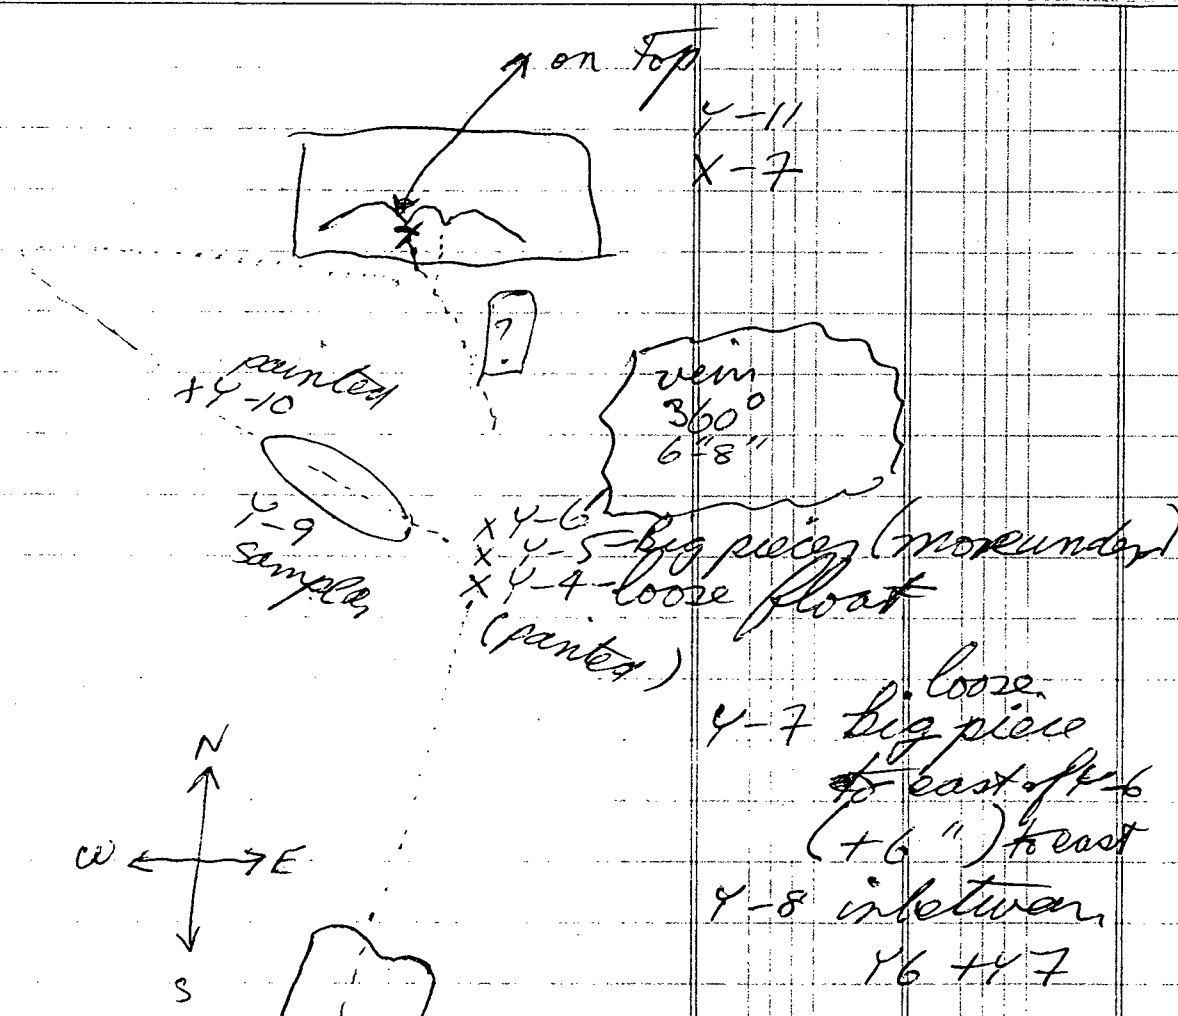 on Top
Y-11
X-7
?
vein
360°
6"-8"
painted
+Y-10
Y-9
samples
X Y-6
X Y-5-Big pieces (more under)
X Y-4-loose float
(painted)
loose
Y-7 big piece
to east of Y-6
(+6 ") to east
Y-8 inbetween
Y6 + Y7
N
W E
S